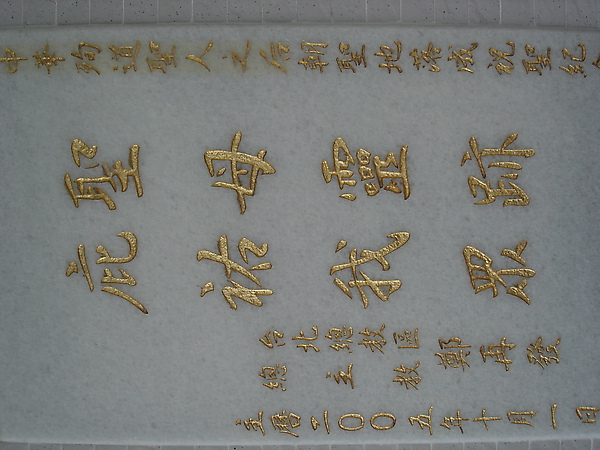 中華殉道聖人之后朝聖地落成祝聖紀
聖母靈跡
庇祐我眾
台北總教區
總主教 鄭再發
主曆二〇〇五年十月一日